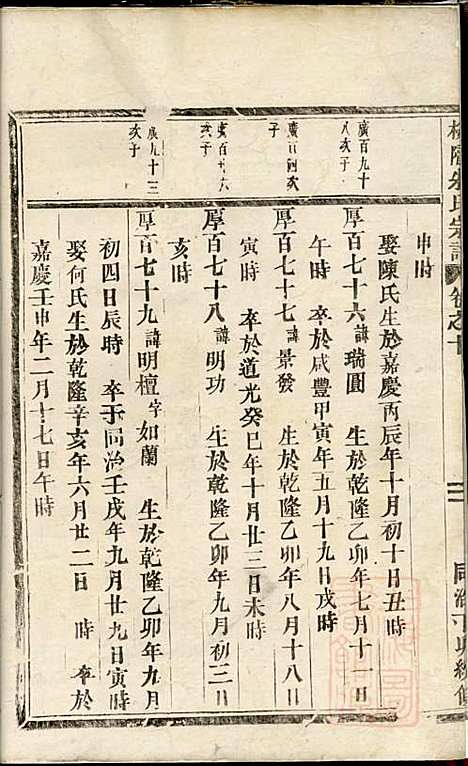 氏宗譜 卷之十 三 同治丁
申時
娶陳氏生於嘉慶丙辰年十月初十日丑時
廣百九十
八次子
厚百七十六諱瑞圓 生於乾隆乙卯年七月十一日
午時 卒於咸豐甲寅年五月十九日戌時
次
子
厚百七十七諱景發 生於乾隆乙卯年八月十八日
寅時 卒於道光癸巳年十月廿三日未時
廣百廿六
次子
厚百七十八諱明功 生於乾隆乙卯年九月初三日
亥時
廣九十三
次子
厚百七十九諱明檀字如蘭 生於乾隆乙卯年九月
初四日辰時 卒于同治壬戌年九月廿九日寅時
娶何氏生於乾隆辛亥年六月廿二日 時 卒於
嘉慶壬申年二月十七日午時